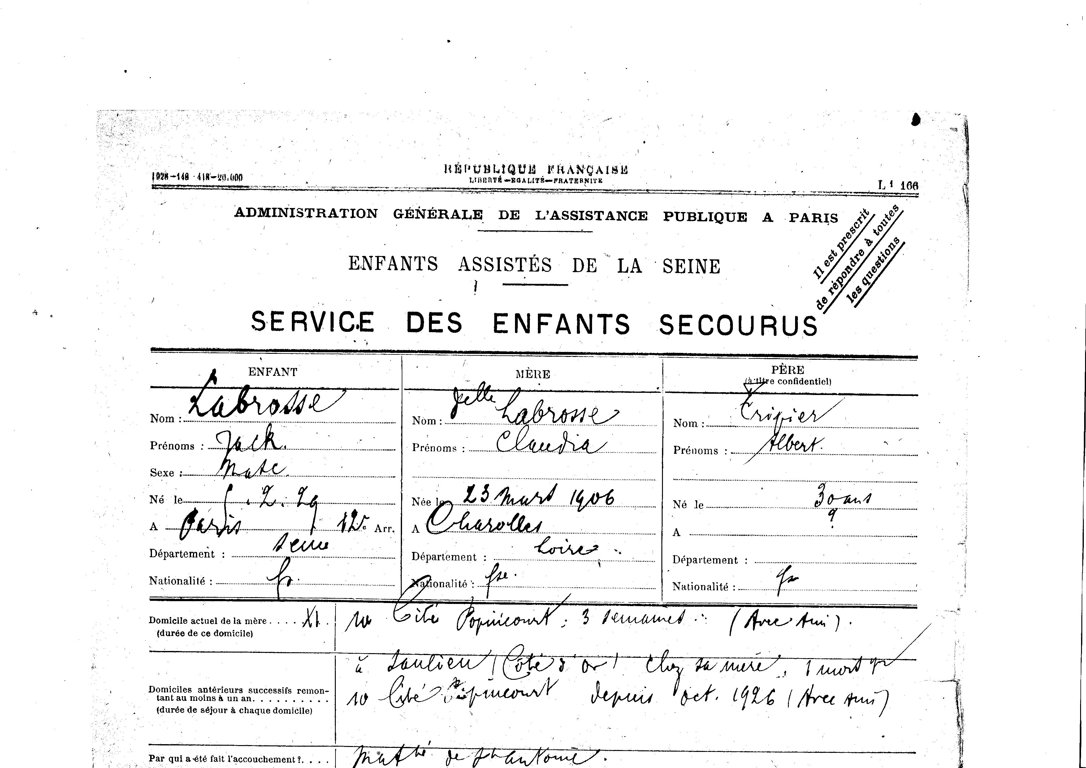 1928-148-418-20.000
RÉPUBLIQUE FRANÇAISE
LIBERTÉ-EGALITÉ-FRATERNITÉ
L¹ 166
ADMINISTRATION GÉNÉRALE DE L'ASSISTANCE PUBLIQUE A PARIS
Il est prescrit
de répondre à toutes
les questions
ENFANTS ASSISTÉS DE LA SEINE
SERVICE DES ENFANTS SECOURUS
ENFANT
Nom : Labrosse
Prénoms : Jack
Sexe : Masc.
Né le 5.2.29
A Paris 12e Arr.
Département : Seine
Nationalité : fr.
MÈRE
Nom : Delle Labrosse
Prénoms : Claudia
Née le 23 Mars 1906
A Charolles
Département : Loire
Nationalité : fse.
PÈRE
(à titre confidentiel)
Nom : Tripier
Prénoms : Albert.
Né le 30 ans
A ?
Département :
Nationalité : fr
Domicile actuel de la mère .... XI. 10 Cité Popincourt, 3 semaines. (Avec Ami).
(durée de ce domicile)
à Saulieu (Côte d'or) chez sa mère, 1 mois
Domiciles antérieurs successifs remontant au moins à un an.......... 10 Cité Popincourt depuis oct. 1926 (Avec Ami)
(durée de séjour à chaque domicile)
Par qui a été fait l'accouchement ?....